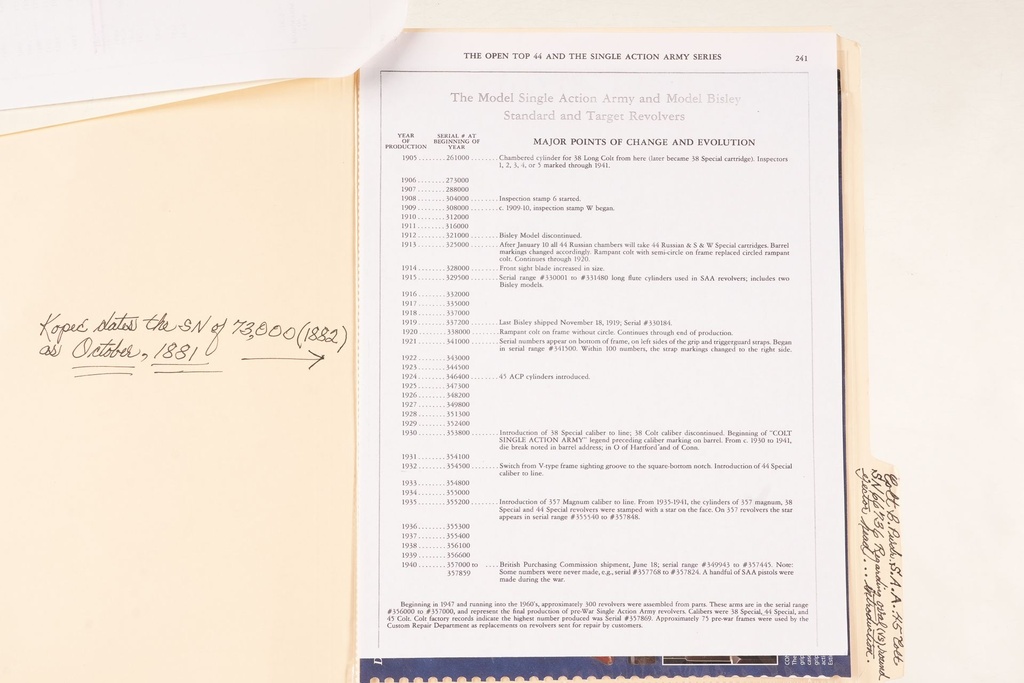 THE OPEN TOP 44 AND THE SINGLE ACTION ARMY SERIES 241
The Model Single Action Army and Model Bisley
Standard and Target Revolvers
YEAR OF PRODUCTION SERIAL # AT BEGINNING OF YEAR MAJOR POINTS OF CHANGE AND EVOLUTION
1905........261000.......Chambered cylinder for 38 Long Colt from here (later became 38 Special cartridge). Inspectors
1, 2, 3, 4, or 5 marked through 1941.
1906........273000
1907........288000
1908........304000.......Inspection stamp 6 started.
1909........308000.......c. 1909-10, inspection stamp W began.
1910........312000
1911........316000
1912........321000.......Bisley Model discontinued.
1913........325000.......After January 10 all 44 Russian chambers will take 44 Russian & S & W Special cartridges. Barrel
markings changed accordingly. Rampant colt with semi-circle on frame replaced circled rampant
colt. Continues through 1920.
1914........328000.......Front sight blade increased in size.
1915........329500.......Serial range #330001 to #331480 long flute cylinders used in SAA revolvers; includes two
Bisley models.
1916........332000
1917........335000
1918........337000
1919........337200.......Last Bisley shipped November 18, 1919; Serial #330184.
1920........338000.......Rampant colt on frame without circle. Continues through end of production.
1921........341000.......Serial numbers appear on bottom of frame, on left sides of the grip and triggerguard straps. Began
in serial range #341500. Within 100 numbers, the strap markings changed to the right side.
1922........343000
1923........344500
1924........346400.......45 ACP cylinders introduced.
1925........347300
1926........348200
1927........349800
1928........351300
1929........352400
1930........353800.......Introduction of 38 Special caliber to line; 38 Colt caliber discontinued. Beginning of "COLT
SINGLE ACTION ARMY" legend preceding caliber marking on barrel. From c. 1930 to 1941,
die break noted in barrel address; in O of Hartford and of Conn.
1931........354100
1932........354500.......Switch from V-type frame sighting groove to the square-bottom notch. Introduction of 44 Special
caliber to line.
1933........354800
1934........355000
1935........355200.......Introduction of 357 Magnum caliber to line. From 1935-1941, the cylinders of 357 magnum, 38
Special and 44 Special revolvers were stamped with a star on the face. On 357 revolvers the star
appears in serial range #355540 to #357848.
1936........355300
1937........355400
1938........356100
1939........356600
1940........357000 to.......British Purchasing Commission shipment, June 18; serial range #349943 to #357445. Note:
357859 Some numbers were never made, e.g., serial #357768 to #357824. A handful of SAA pistols were
made during the war.
Beginning in 1947 and running into the 1960's, approximately 300 revolvers were assembled from parts. These arms are in the serial range
#356000 to #357000, and represent the final production of pre-War Single Action Army revolvers. Calibers were 38 Special, 44 Special, and
45 Colt. Colt factory records indicate the highest number produced was Serial #357869. Approximately 75 pre-war frames were used by the
Custom Repair Department as replacements on revolvers sent for repair by customers.
Kopec states the SN of 73,000 (1882)
as October, 1881
Colt B. Pinch. S.A.A. .45 Colt
SN 66436 Regarding oval (vs) round
ejector head...introduction.